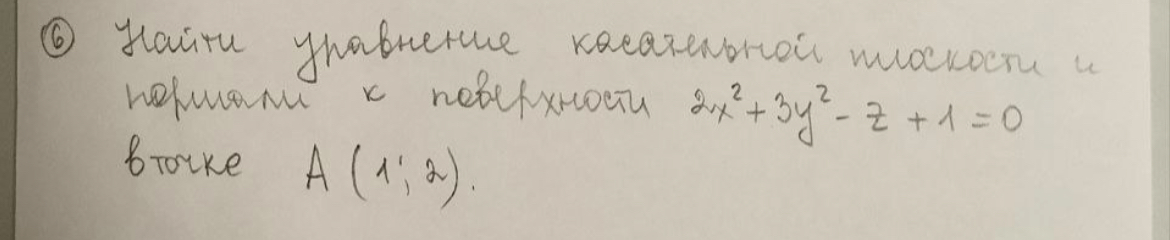 ⑥ Найти уравнение касательной плоскости и
нормали к поверхности 2x² + 3y² - z + 1 = 0
в точке A (1; 2).